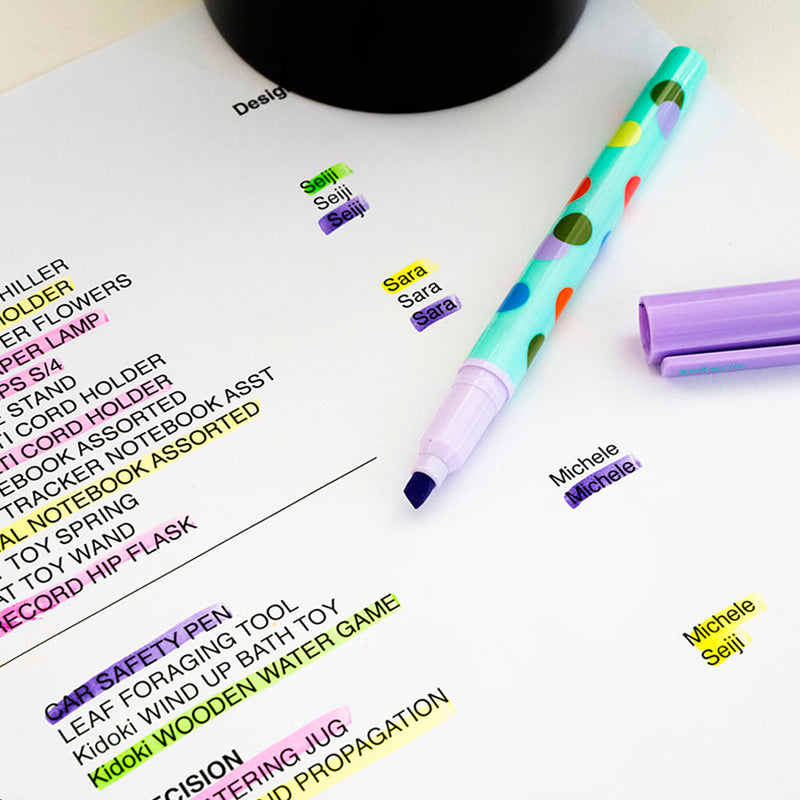 Design
Seiji
Seiji
Seiji
Sara
Sara
Sara
HILLER
HOLDER
ER FLOWERS
PER LAMP
PS S/4
E STAND
TI CORD HOLDER
TI CORD HOLDER
EBOOK ASSORTED
TRACKER NOTEBOOK ASST
AL NOTEBOOK ASSORTED
TOY SPRING
AT TOY WAND
RECORD HIP FLASK
Michele
Michele
Michele
Seiji
CAR SAFETY PEN
LEAF FORAGING TOOL
Kidoki WIND UP BATH TOY
Kidoki WOODEN WATER GAME
ECISION
TERING JUG
ND PROPAGATION